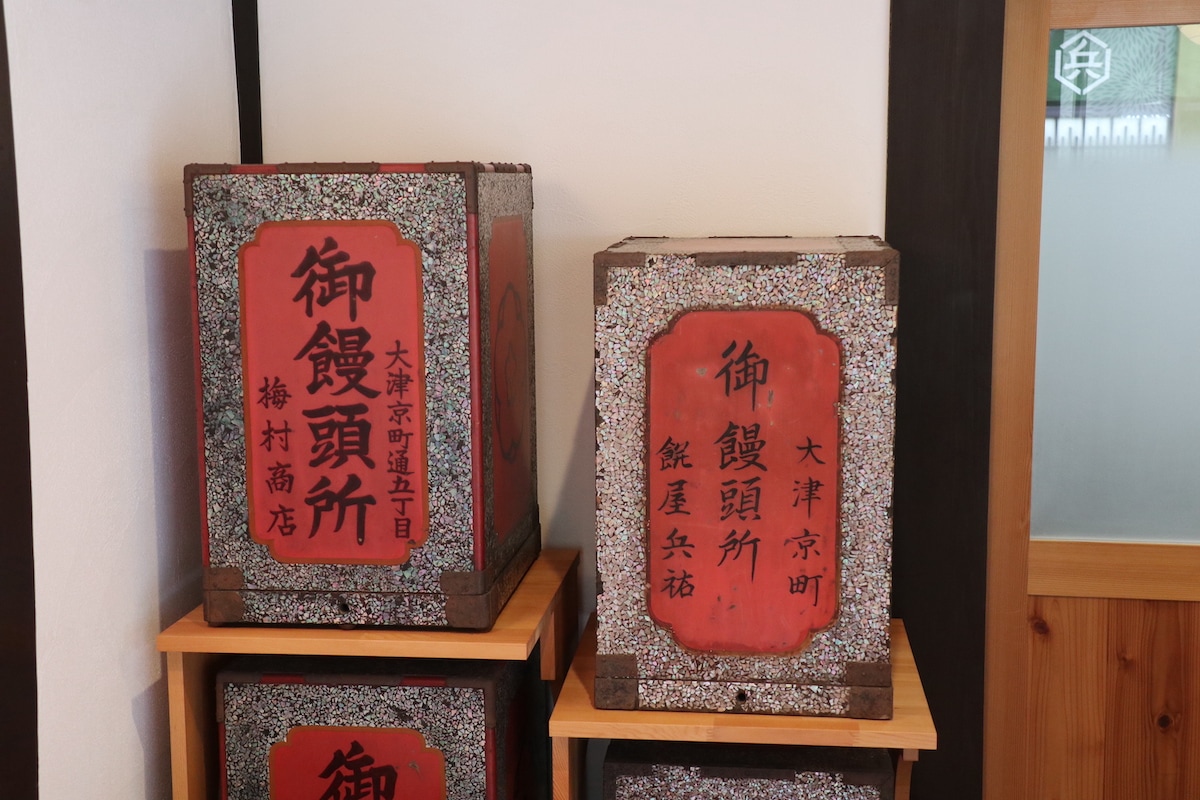 大津京町通五丁目
御饅頭所
梅村商店
大津京町
御饅頭所
餻屋兵祐
御
兵